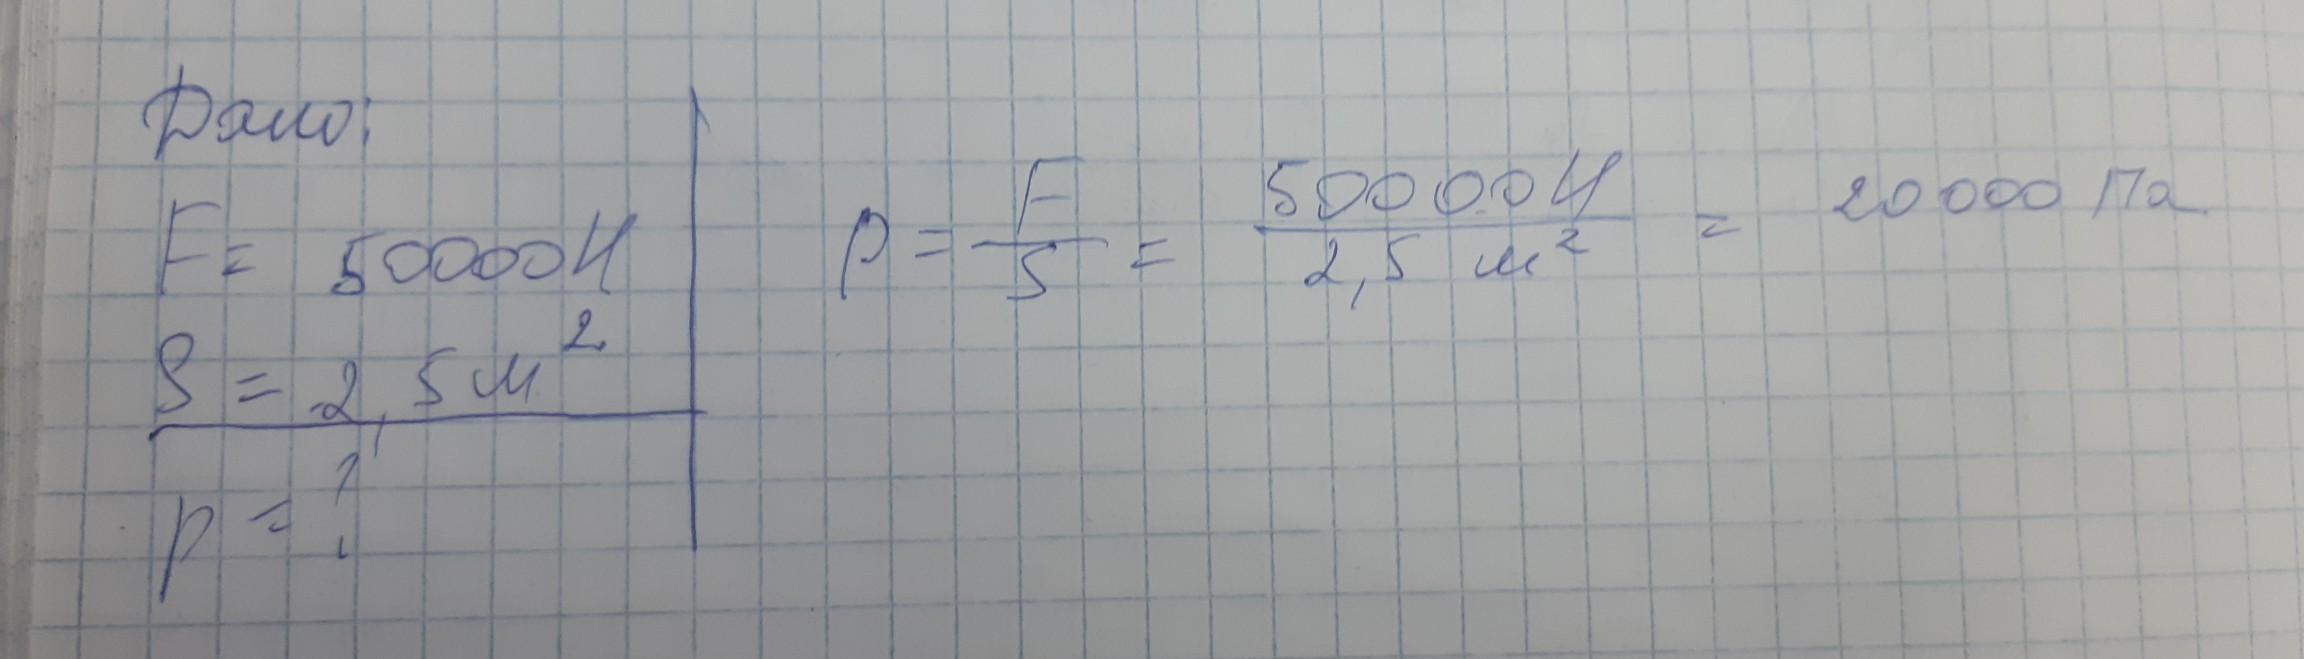 Дано:
F = 50000 Н
S = 2,5 м²
p = ?
p = F/S = 50000 Н / 2,5 м² = 20000 Па